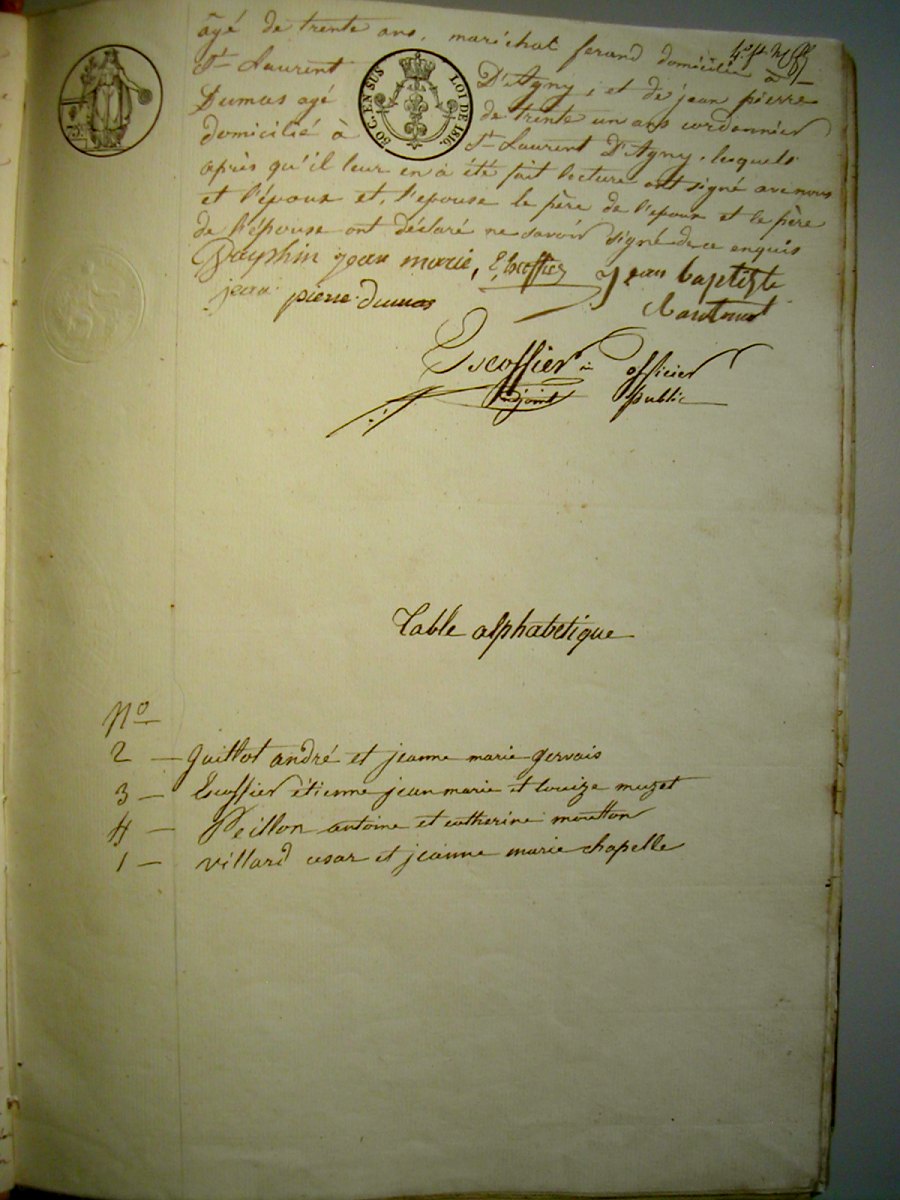 âgé de trente ans, maréchal ferand domicilié à
St Laurent D'Agny, et de jean pierre
Dumas agé de trente un ans cordonnier
domicilié à St Laurent D'Agny, lesquels
après qu'il leur en à été fait lecture ont signé avec nous
et l'époux et, l'epouse le père de l'epoux et le père
de l'épouse ont déclaré ne savoir signé de ce enquis
50 C. EN SUS
LOI DE 1816.
Dauphin jean marie, Escoffier jean baptiste
jean pierre dumas
Escoffier officier
adjoint public
Table alphabetique
No
2 — Guillot andré et jeanne marie gervais
3 — Escoffier étienne jean marie et louize muzet
4 — Peillon antoine et catherine moutton
1 — villard cesar et jeanne marie chapelle